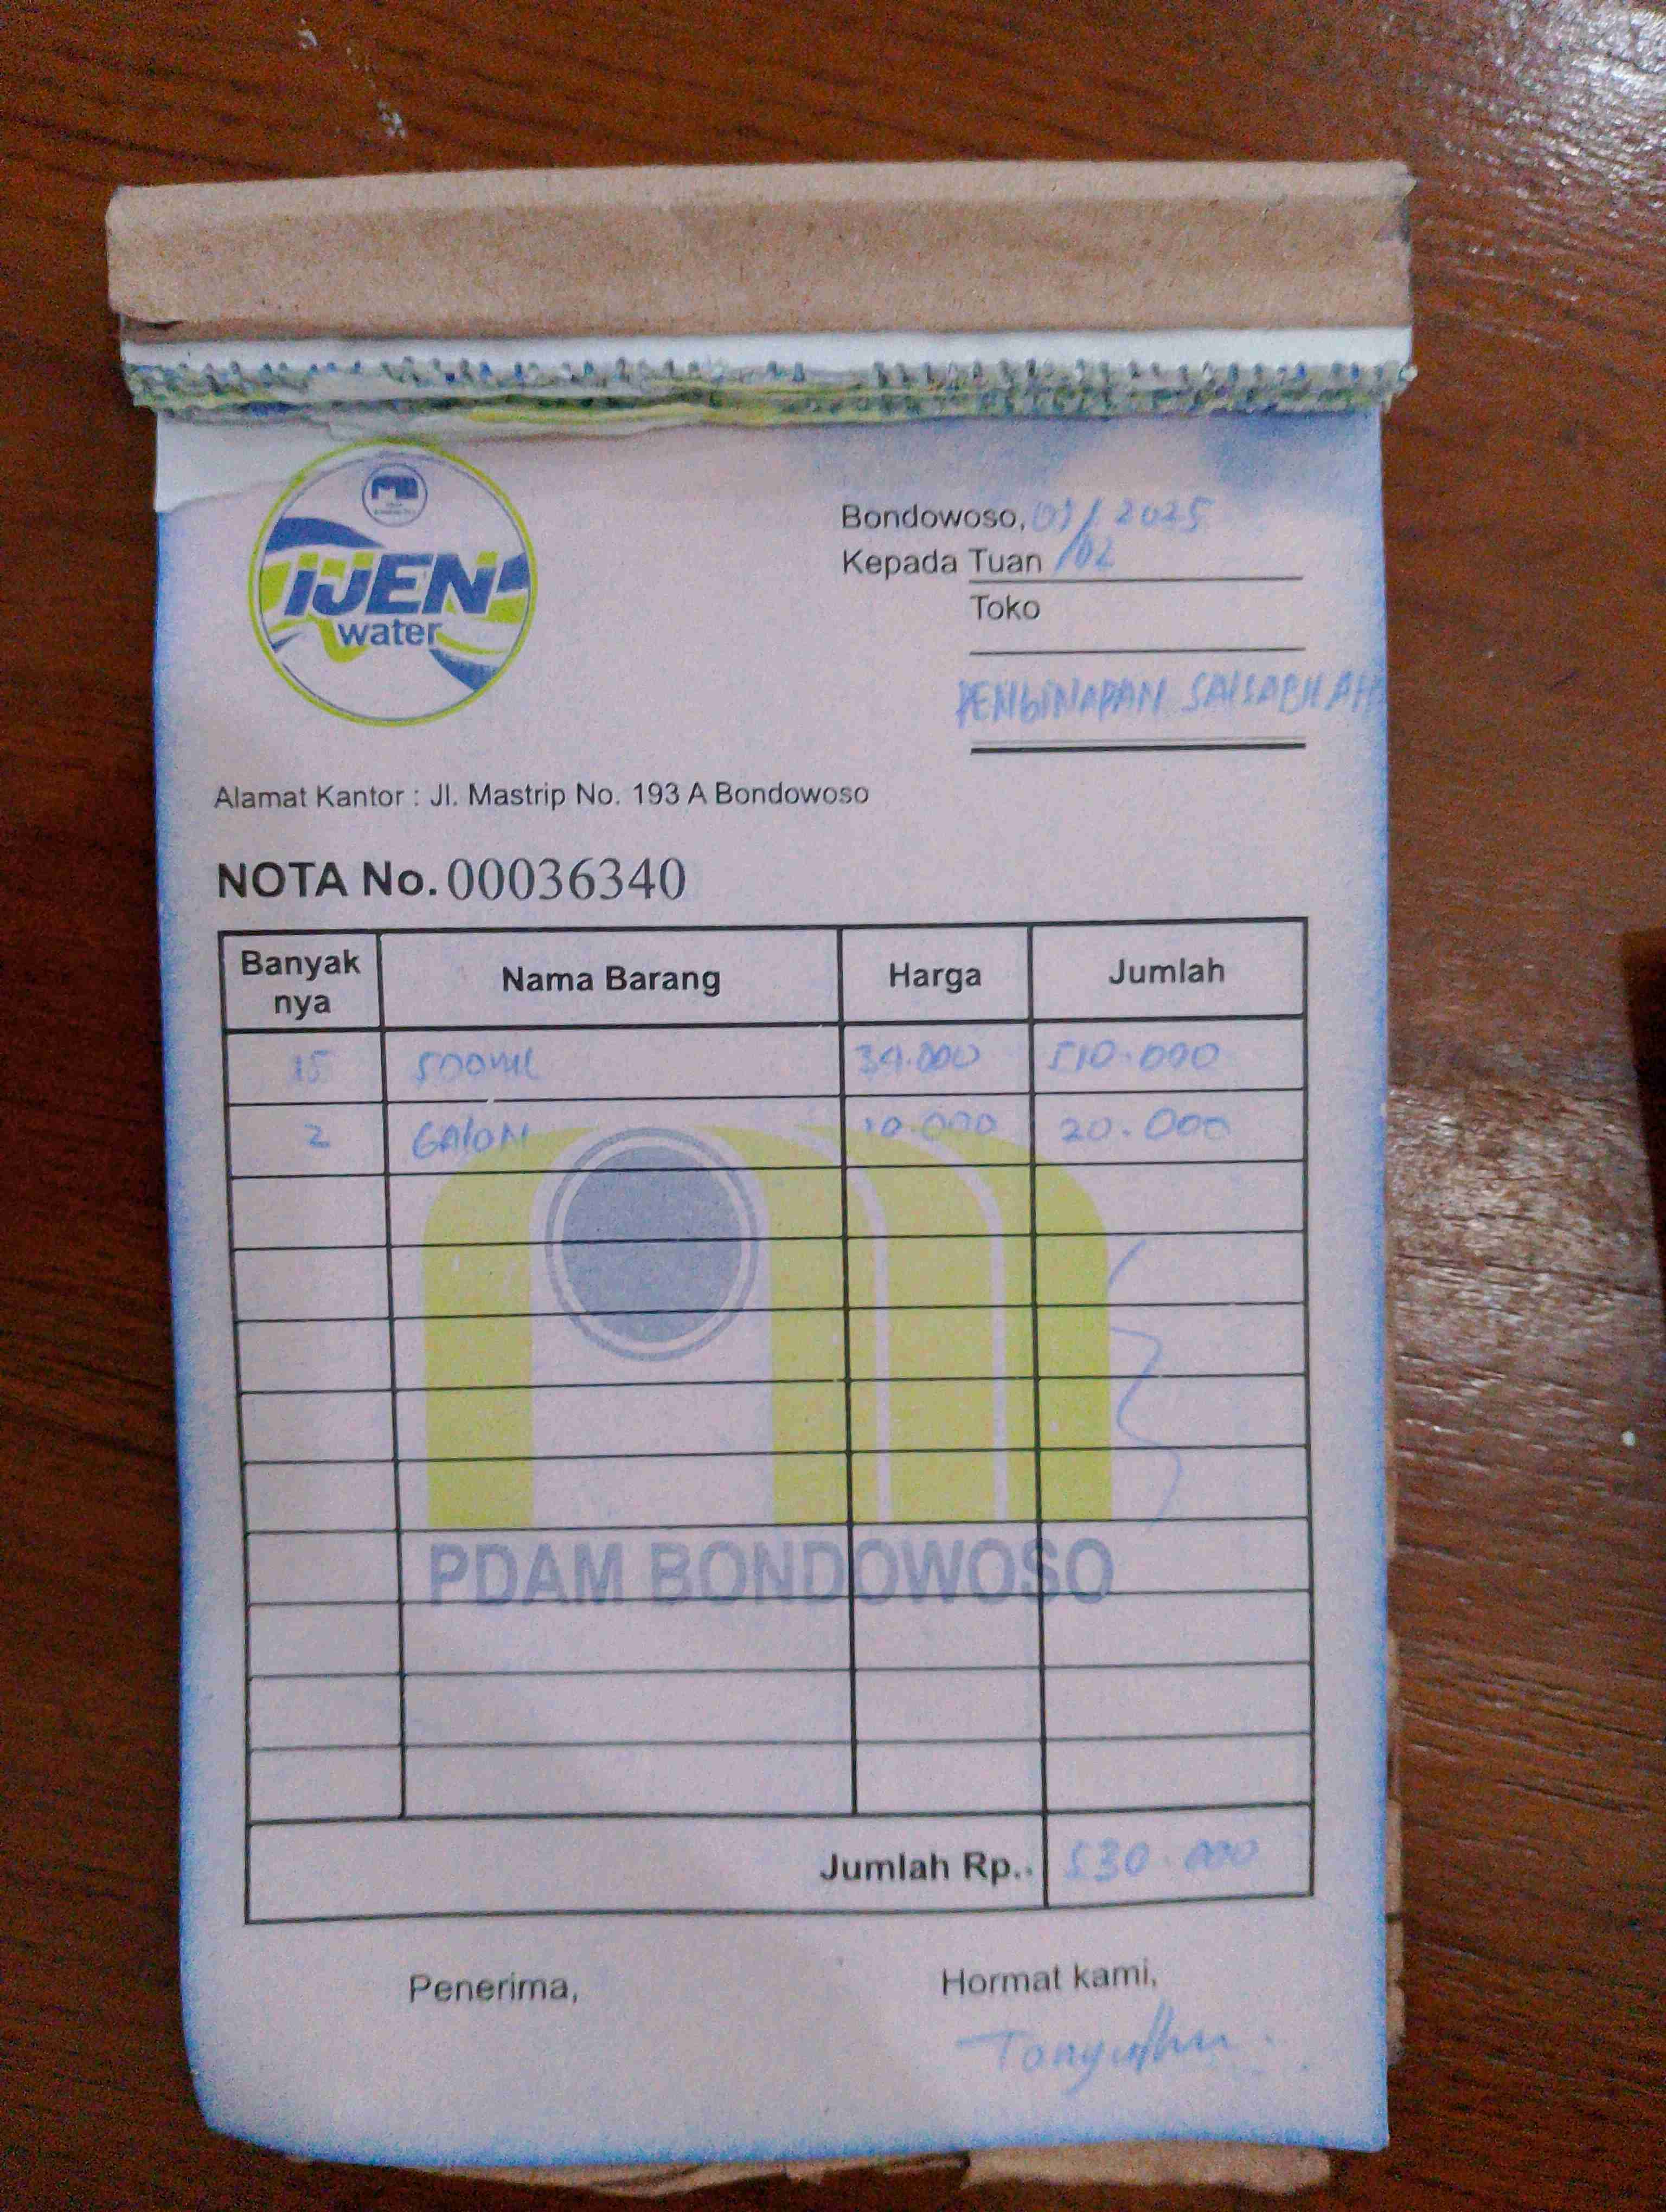 IJEN
water
Bondowoso, 07/02 2025
Kepada Tuan
Toko
PENGINAPAN SALSABILAH
Alamat Kantor : Jl. Mastrip No. 193 A Bondowoso
NOTA No. 00036340
Banyak nya Nama Barang Harga Jumlah
15 500ML 34.000 510.000
2 GALON 10.000 20.000
PDAM BONDOWOSO
Jumlah Rp.. 530.000
Penerima, Hormat kami,